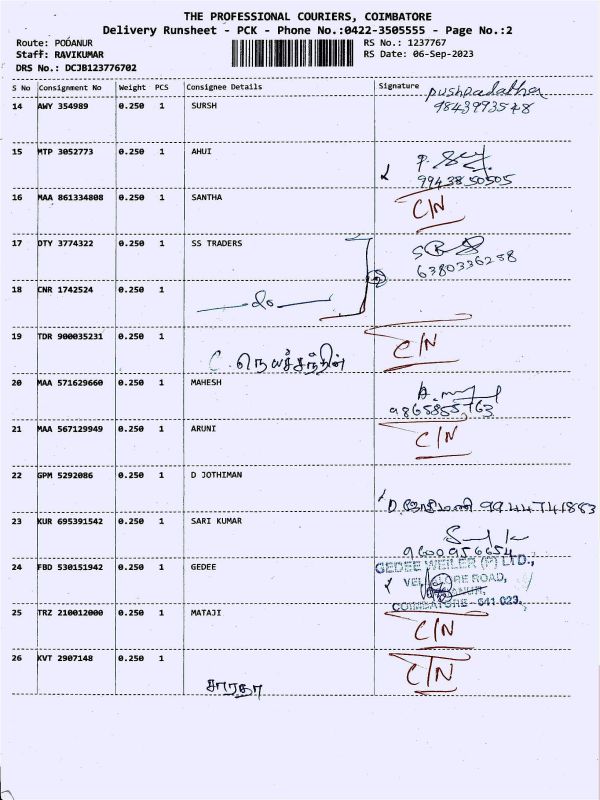 THE PROFESSIONAL COURIERS, COIMBATORE
Delivery Runsheet - PCK - Phone No.:0422-3505555 - Page No.:2
Route: PODANUR RS No.: 1237767
Staff: RAVIKUMAR RS Date: 06-Sep-2023
DRS No.: DCJB123776702
S No Consignment No Weight PCS Consignee Details Signature
14 AWY 354989 0.250 1 SURSH
9843993548
15 MTP 3052773 0.250 1 AHUI
9943850505
16 MAA 861334808 0.250 1 SANTHA C/N
17 DTY 3774322 0.250 1 SS TRADERS
6380336258
18 CNR 1742524 0.250 1
do
19 TDR 900035231 0.250 1 C/N
20 MAA 571629660 0.250 1 MAHESH
9865855763
21 MAA 567129949 0.250 1 ARUNI C/N
22 GPM 5292086 0.250 1 D JOTHIMAN
D.ஜோதிமணி 9944741883
23 KUR 695391542 0.250 1 SARI KUMAR
9600956654
24 FBD 530151942 0.250 1 GEDEE
GEDEE WEILER (P) LTD.,
ROAD,
COIMBATORE - 641 023.
25 TRZ 210012000 0.250 1 MATAJI C/N
26 KVT 2907148 0.250 1 C/N
சாரதா